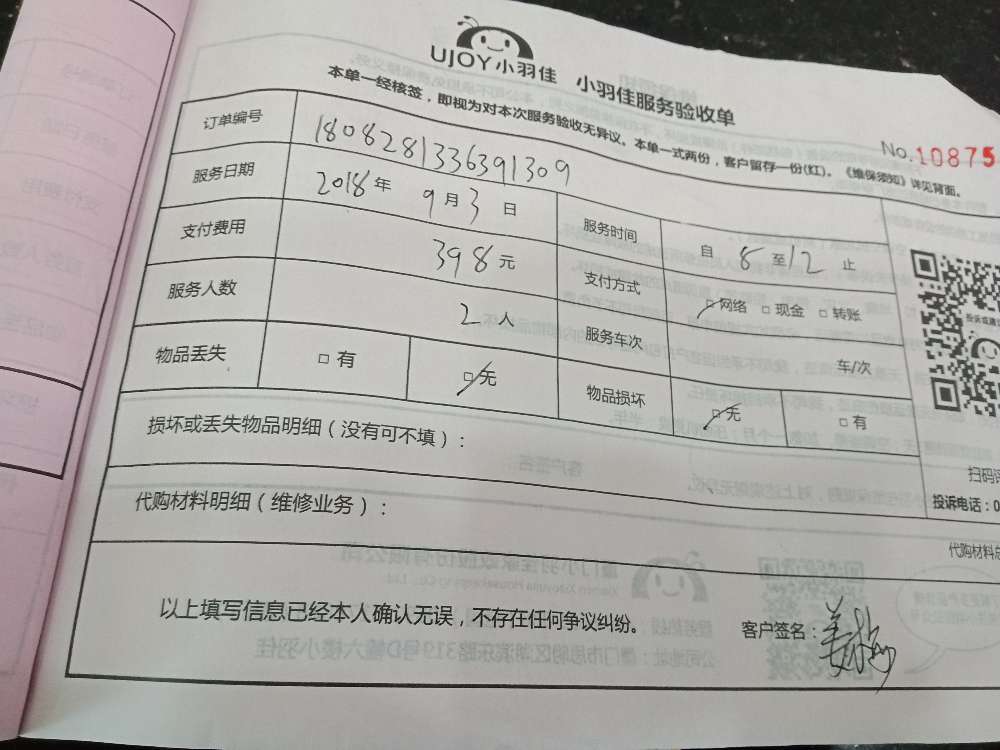 UJOY小羽佳 小羽佳服务验收单
本单一经核签，即视为对本次服务验收无异议。本单一式两份，客户留存一份(红)。《维保须知》详见背面。
No.10875
订单编号 1808281336391309
服务日期 2018年 9月3日 服务时间 自 8 至 12 止
支付费用 398元 支付方式 □网络 □现金 □转账
服务人数 2人 服务车次 车/次
物品丢失 □有 □无 物品损坏 □无 □有
损坏或丢失物品明细（没有可不填）：
扫码
投诉电话：0
代购材料明细（维修业务）：
代购材料总
以上填写信息已经本人确认无误，不存在任何争议纠纷。 客户签名：